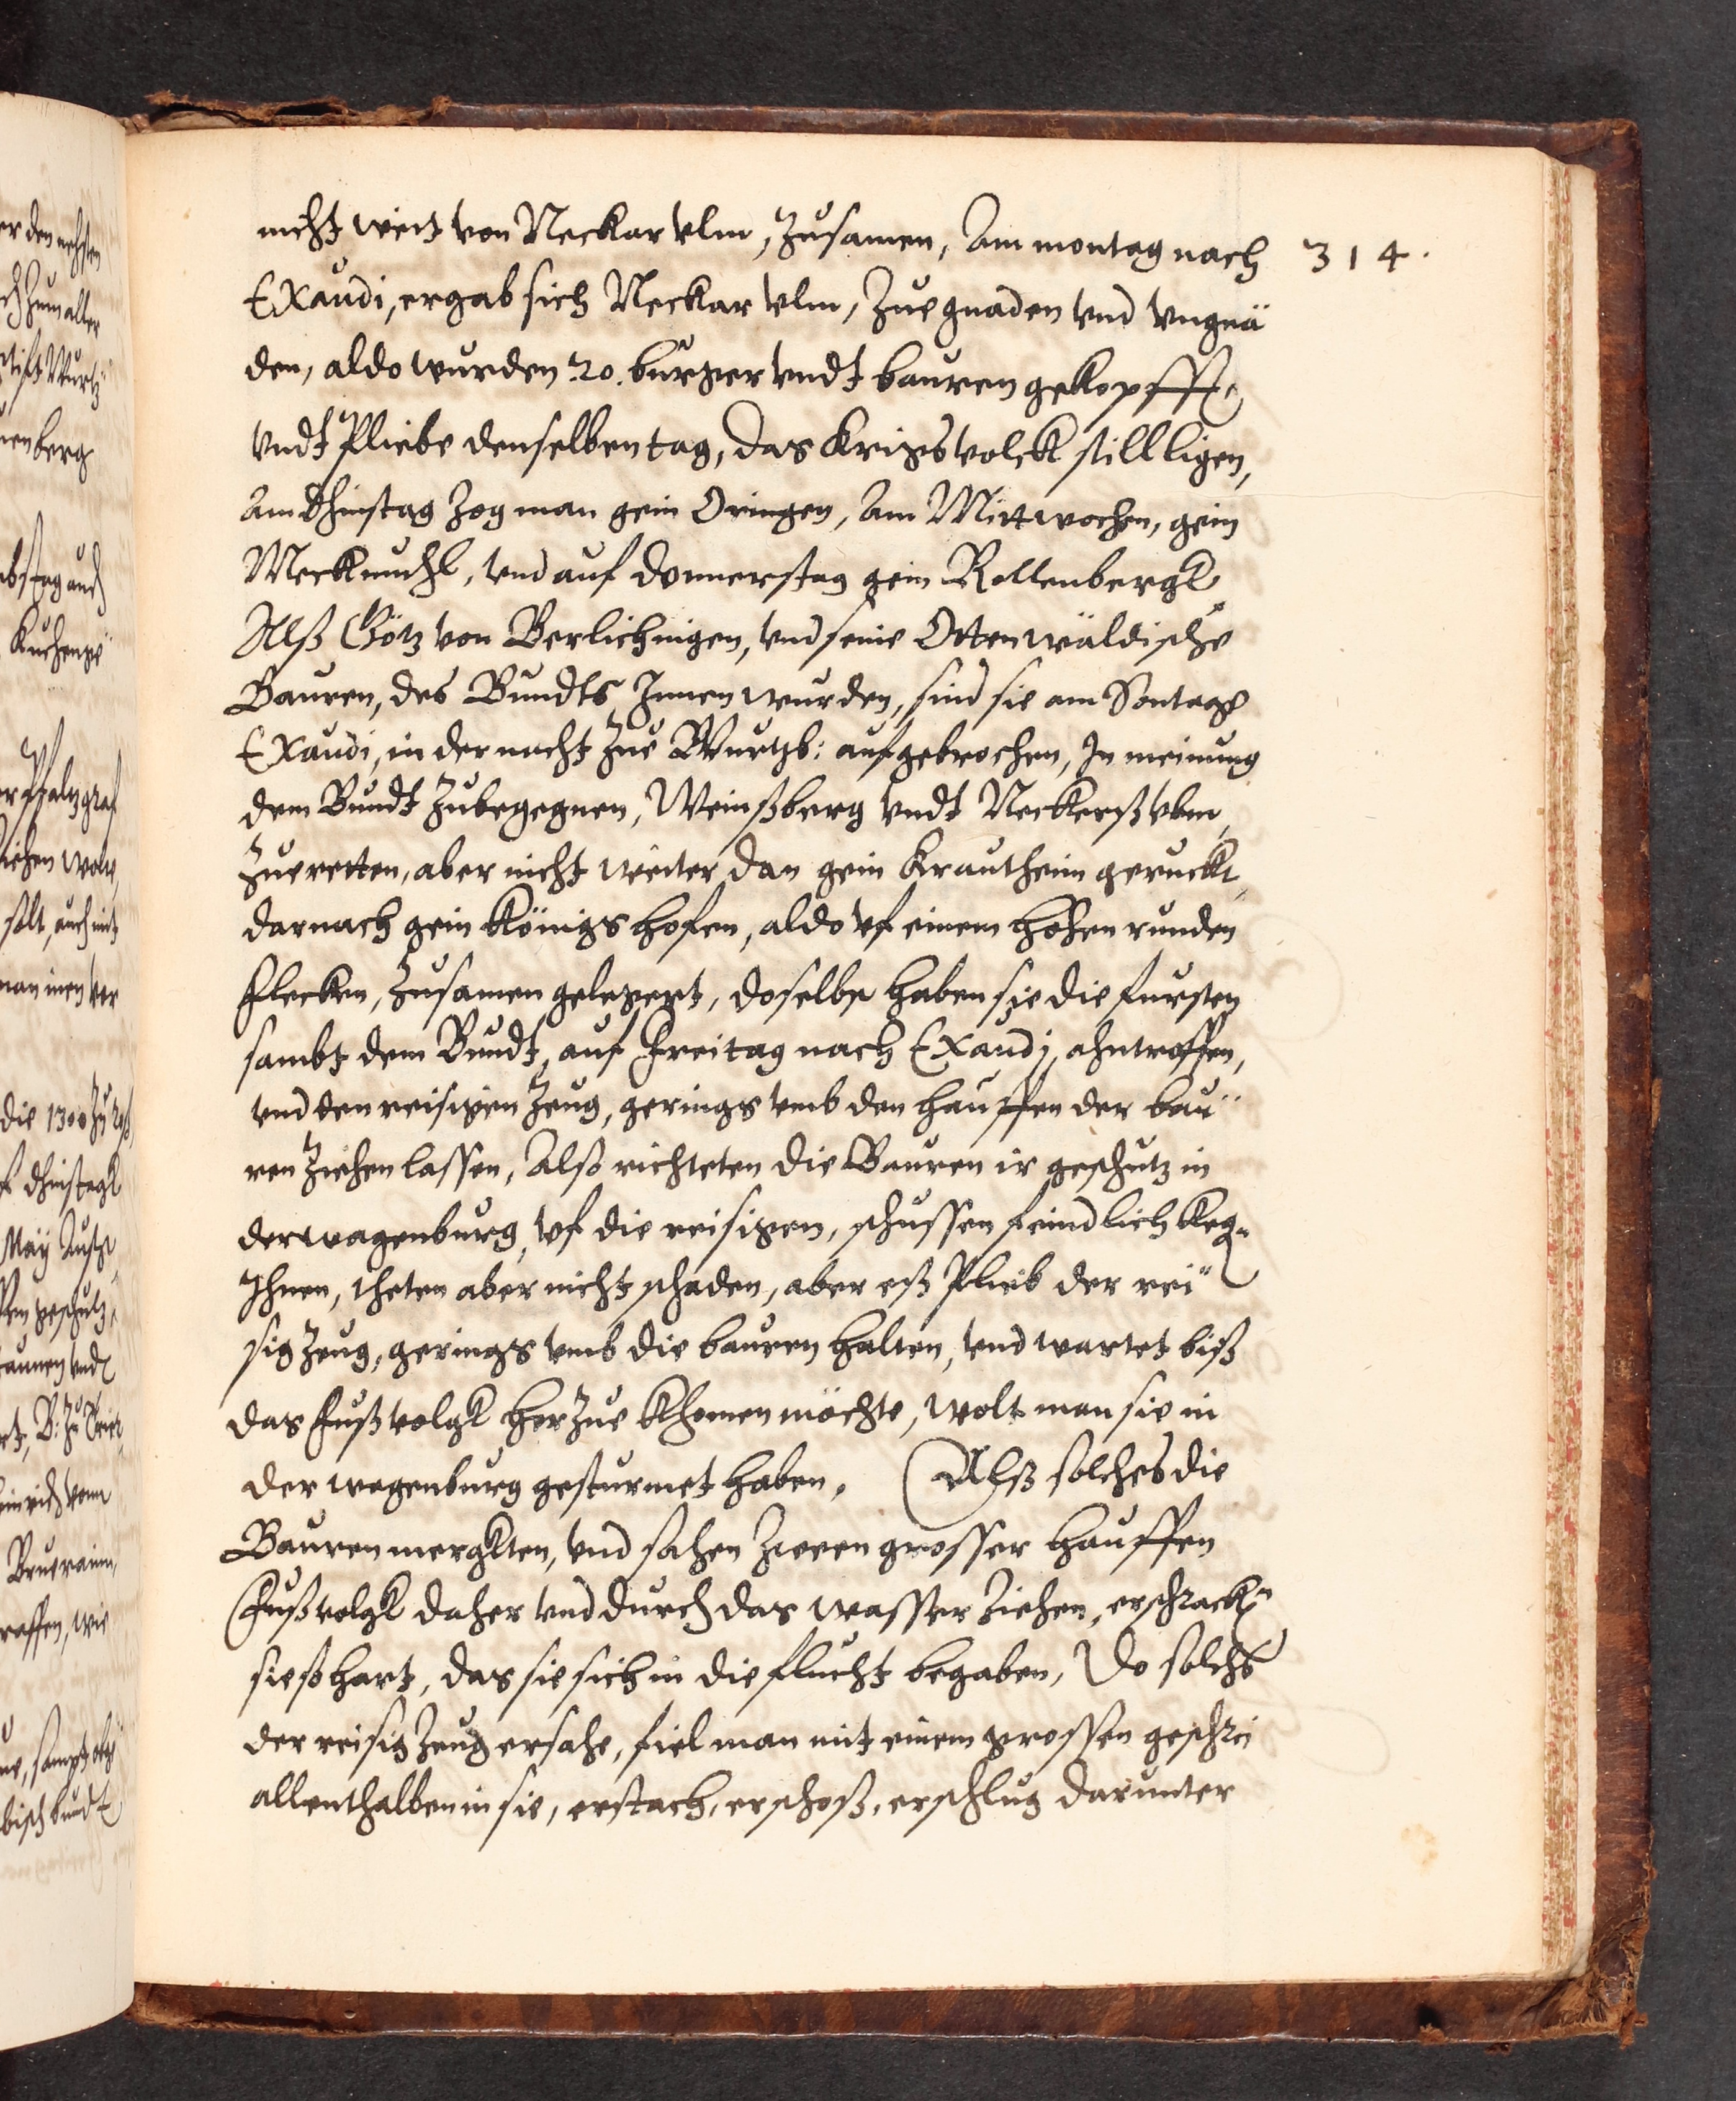 314.
nicht weit von Neckar Vlm, zusamen, Am montag nach
Exaudi, ergab sich Neckar Vlm, Zue gnaden vnd Vngna¨
den, aldo wurden 20. burger vndt bauren gekopfft,
vndt pliebe denselben tag, das Krigsvolck still ligen,
Am Dhinstag zog man gein Oringen, Am Mittwochen, gein
Meckmuhl, vnd auf donnerstag gein Rottenbergk
Alß Götz von Berlichingen, vnd seine Ottenwäldische
Bauren, des Bundts Innen wurden, sind sie am Sontags
Exaudi, in der nacht zue Wurtzb: aufgebrochen, In meinung
dem Bundt zubegegnen, Weinßberg vndt Neckerß Vlm,
zueretten, aber nicht weiter dan gein Krautheim geruckt,
darnach gein Königshofen, aldo vf einem hohen runden
flecken, zusamen gelegert, doselbst haben sie die fursten
sambt dem Bundt, auf Freitag nach Exaudj, ahntroffen,
vnd den reisigen Zeug, gerings vmb den hauffen der bau¨
ren ziehen lassen, Alß richteten die Bauren ir geschutz in
der wagenburg, vf die reisigen, schussen feindlich keg-
Ihnen, theten aber nicht schaden, aber eß plieb der rei¨
sig Zeug, gerings vmb die bauren halten, vnd wartet biß
das fußvolgk herzue khomen möchte, wolt man sie in
der wagenburg gesturmet haben. Alß solches die
Bauren mergkten, vnd sahen zween grosser hauffen
Fußvolgk daher vnd durch das wasser ziehen, erschrack
sie so hart, das sie sich in die flucht begaben, Do solchs
der reisig Zeug ersahe, fiel man mit einem grossen geschrei
allenthalben in sie, erstach, erschoß, erschlug darunter